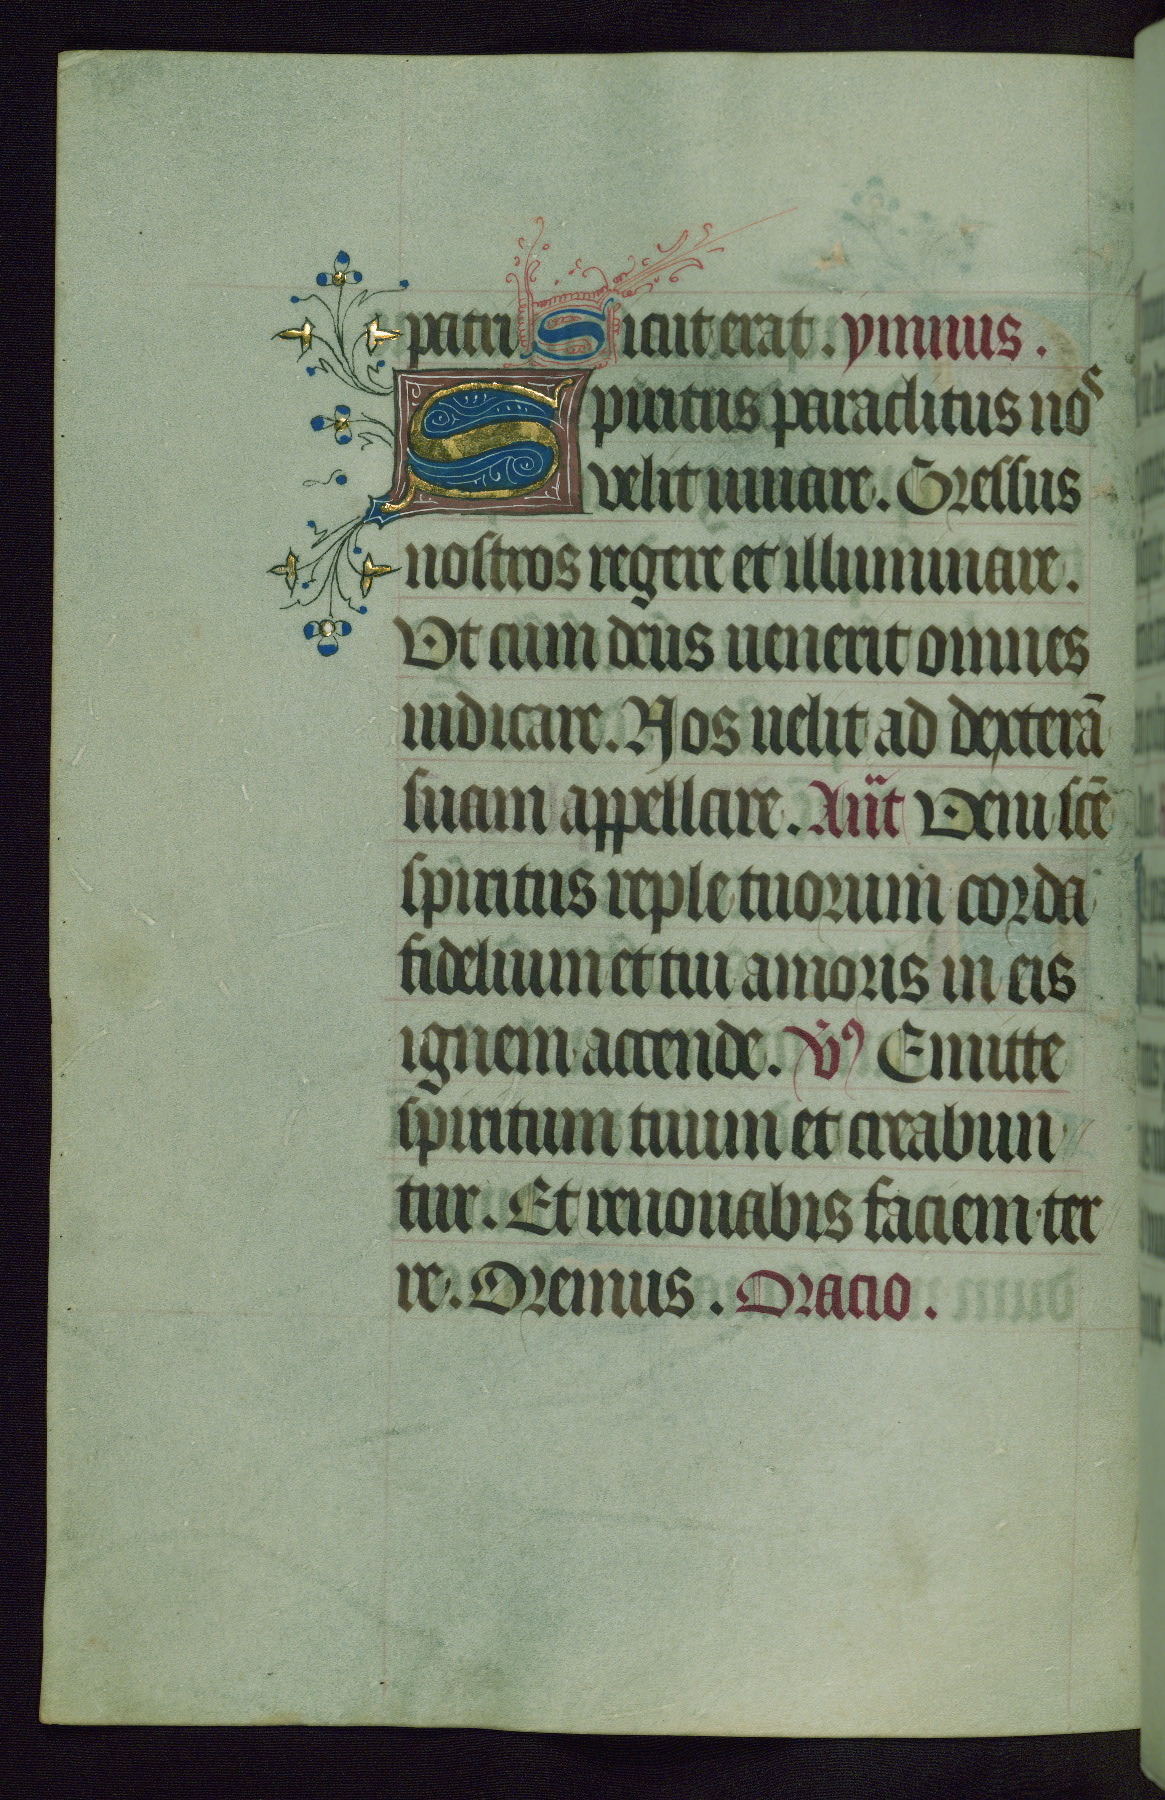 patri Sicut erat. ymnus.
Spiritus paraclitus nos
velit iuuare. Gressus
nostros regere et illuminare.
Ut cum deus uenerit omnes
iudicare. Nos uelit ad dexterā
suam appellare. Añt Veni scē
spiritus reple tuorum corda
fidelium et tui amoris in eis
ignem accende. V̉ Emitte
spiritum tuum et creabun
tur. Et renouabis faciem ter
re. Oremus. Oracio.